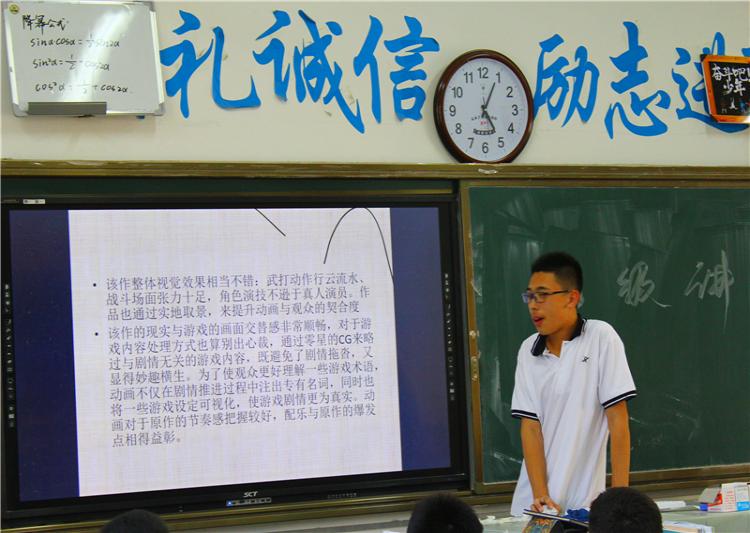 降幂公式:
sinα cosα = ½ sin2α
礼 诚信 励志 进
奋斗吧!
少年
12 1 2 3 4 5 6 7 8 9 10 11
• 该作整体视觉效果相当不错：武打动作行云流水、
战斗场面张力十足，角色演技不逊于真人演员。作
品也通过实地取景，来提升动画与观众的契合度
• 该作的现实与游戏的画面交替感非常顺畅，对于游
戏内容处理方式也算别出心裁，通过零星的CG来略
过与剧情无关的游戏内容，既避免了剧情拖沓，又
显得妙趣横生。为了使观众更好理解一些游戏术语，
动画不仅在剧情推进过程中注出专有名词，同时也
将一些游戏设定可视化，使游戏剧情更为真实。动
画对于原作的节奏感把握较好，配乐与原作的爆发
点相得益彰。
级 诚
SCT